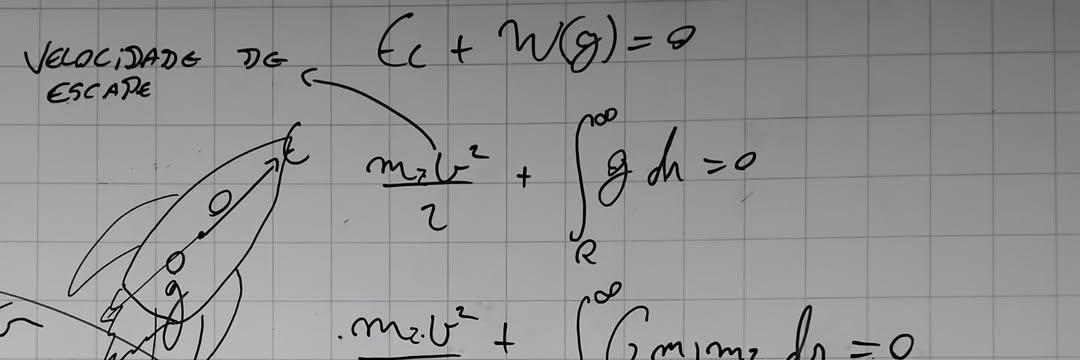 VELOCIDADE DE
ESCAPE
Ec + W(g) = 0
m₂v²/2 + ∫_R^∞ g dh = 0
E
g
m₂.v² + ∫^∞ G m₁m₂ dh = 0